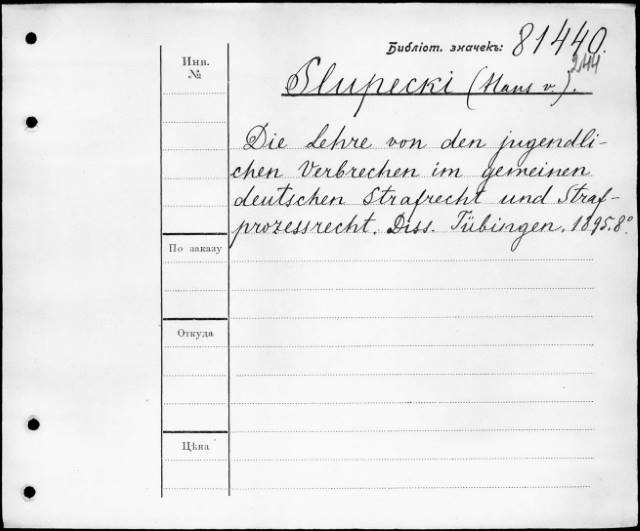 Библіот. значекъ: 81440.
244
Slupecki (Hans v.).
Инв.
№
Die Lehre von den jugendli-
chen Verbrechen im gemeinen
deutschen Strafrecht und Straf-
prozessrecht. Diss. Tübingen. 1895. 8°
По заказу
Откуда
Цѣна